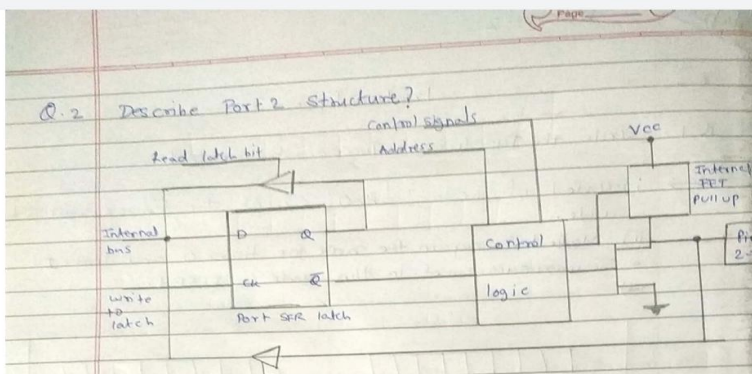 Page
Q.2 Describe Port 2 structure?
Control signals
Address
Read latch bit
Vcc
Internal
FET
Pull up
Internal
bus
D Q
Control
logic
Pi
2-
CLK Q̅
write
to
latch
Port SFR latch